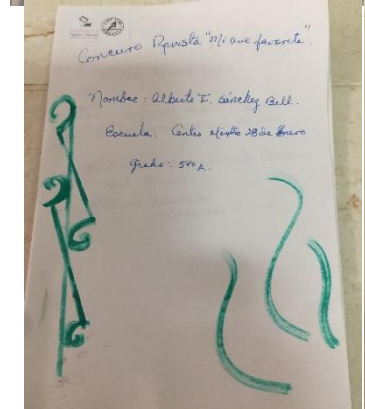 Concurso Revista "Mi ave favorita".
Nombre: Alberto F. Sánchez Bell.
Escuela: Centro Mixto 28 de Enero
grado: 5to A.